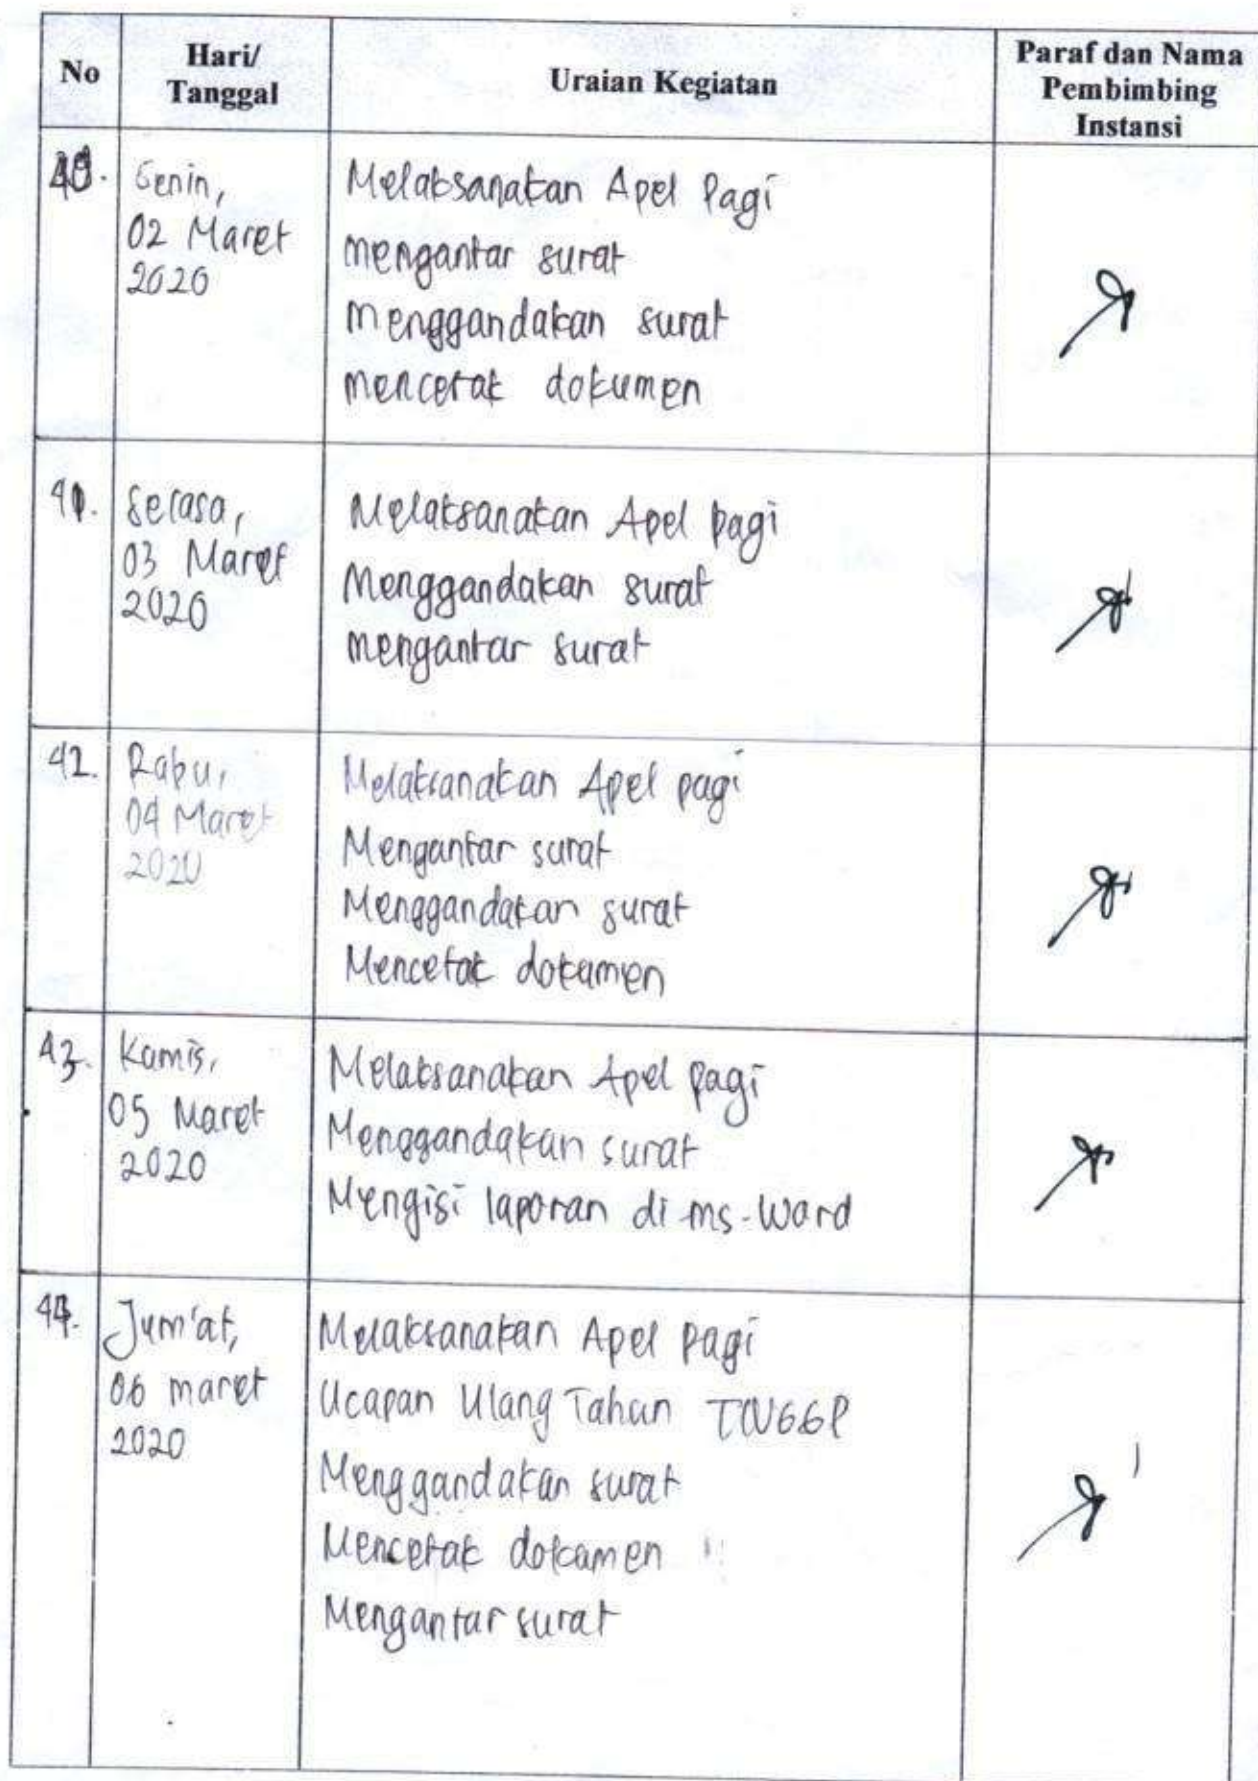 No
Hari/
Tanggal
Uraian Kegiatan
Paraf dan Nama
Pembimbing
Instansi
40.
Senin,
02 Maret
2020
Melaksanakan Apel Pagi
mengantar surat
menggandakan surat
mencetak dokumen
41.
Selasa,
03 Maret
2020
Melaksanakan Apel pagi
Menggandakan surat
mengantar surat
42.
Rabu,
04 Maret
2020
Melaksanakan Apel pagi
Mengantar surat
Menggandakan surat
Mencetak dokumen
43.
Kamis,
05 Maret
2020
Melaksanakan Apel pagi
Menggandakan surat
Mengisi laporan di ms-Word
44.
Jum'at,
06 maret
2020
Melaksanakan Apel pagi
Ucapan Ulang Tahun
Menggandakan surat
Mencetak dokumen
Mengantar surat